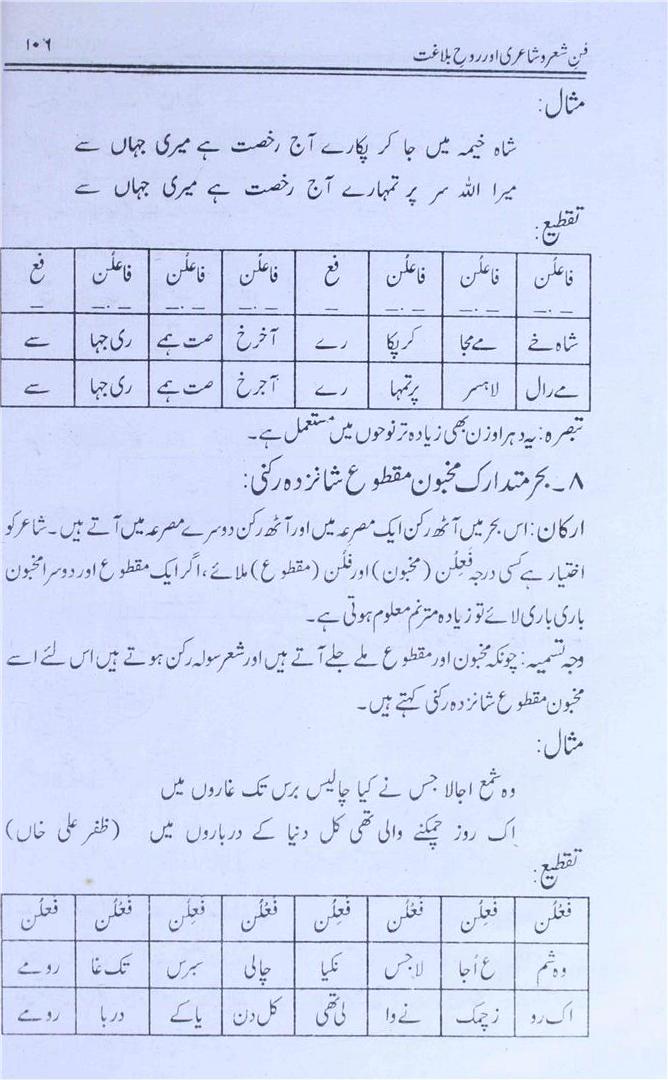 فن شعر و شاعری اور روح بلاغت ۱۰۶
مثال:
شاہ خیمہ میں جا کر پکارے آج رخصت ہے میری جہاں سے
میرا اللہ سر پر تمہارے آج رخصت ہے میری جہاں سے
تقطیع:
فاعلُن فاعلُن فاعلُن فع فاعلُن فاعلُن فاعلُن فع
شاہ خے مے مجا کر پکا رے آخرخ صت ہمے ری جہا سے
مے رال لاہسر پر تمہا رے آجرخ صت ہمے ری جہا سے
تبصرہ: یہ دہرا وزن بھی زیادہ تر نوحوں میں مستعمل ہے۔
۸۔ بحر متدارک مخبون مقطوع شانزدہ رکنی:
ارکان: اس بحر میں آٹھ رکن ایک مصرعہ میں اور آٹھ رکن دوسرے مصرعہ میں آتے ہیں۔ شاعر کو
اختیار ہے کسی درجہ فَعِلُن (مخبون) اور فَلُن (مقطوع) ملائے، اگر ایک مقطوع اور دوسرا مخبون
باری باری لائے تو زیادہ مترنم معلوم ہوتی ہے۔
وجہ تسمیہ: چونکہ مخبون اور مقطوع ملے جلے آتے ہیں اور شعر سولہ رکن ہوتے ہیں اس لئے اسے
مخبون مقطوع شانزدہ رکنی کہتے ہیں۔
مثال:
وہ شمع اجالا جس نے کیا چالیس برس تک غاروں میں
اک روز چمکنے والی تھی کل دنیا کے درباروں میں (ظفر علی خاں)
تقطیع:
فَعْلُن فَعِلُن فَعْلُن فَعِلُن فَعْلُن فَعِلُن فَعْلُن فَعْلُن
وہ شم ع اُجا لا جس نکیا چالی سبرس تک غا رومے
اک رو زچمک نے وا لی تھی کل دن یاکے دربا رومے